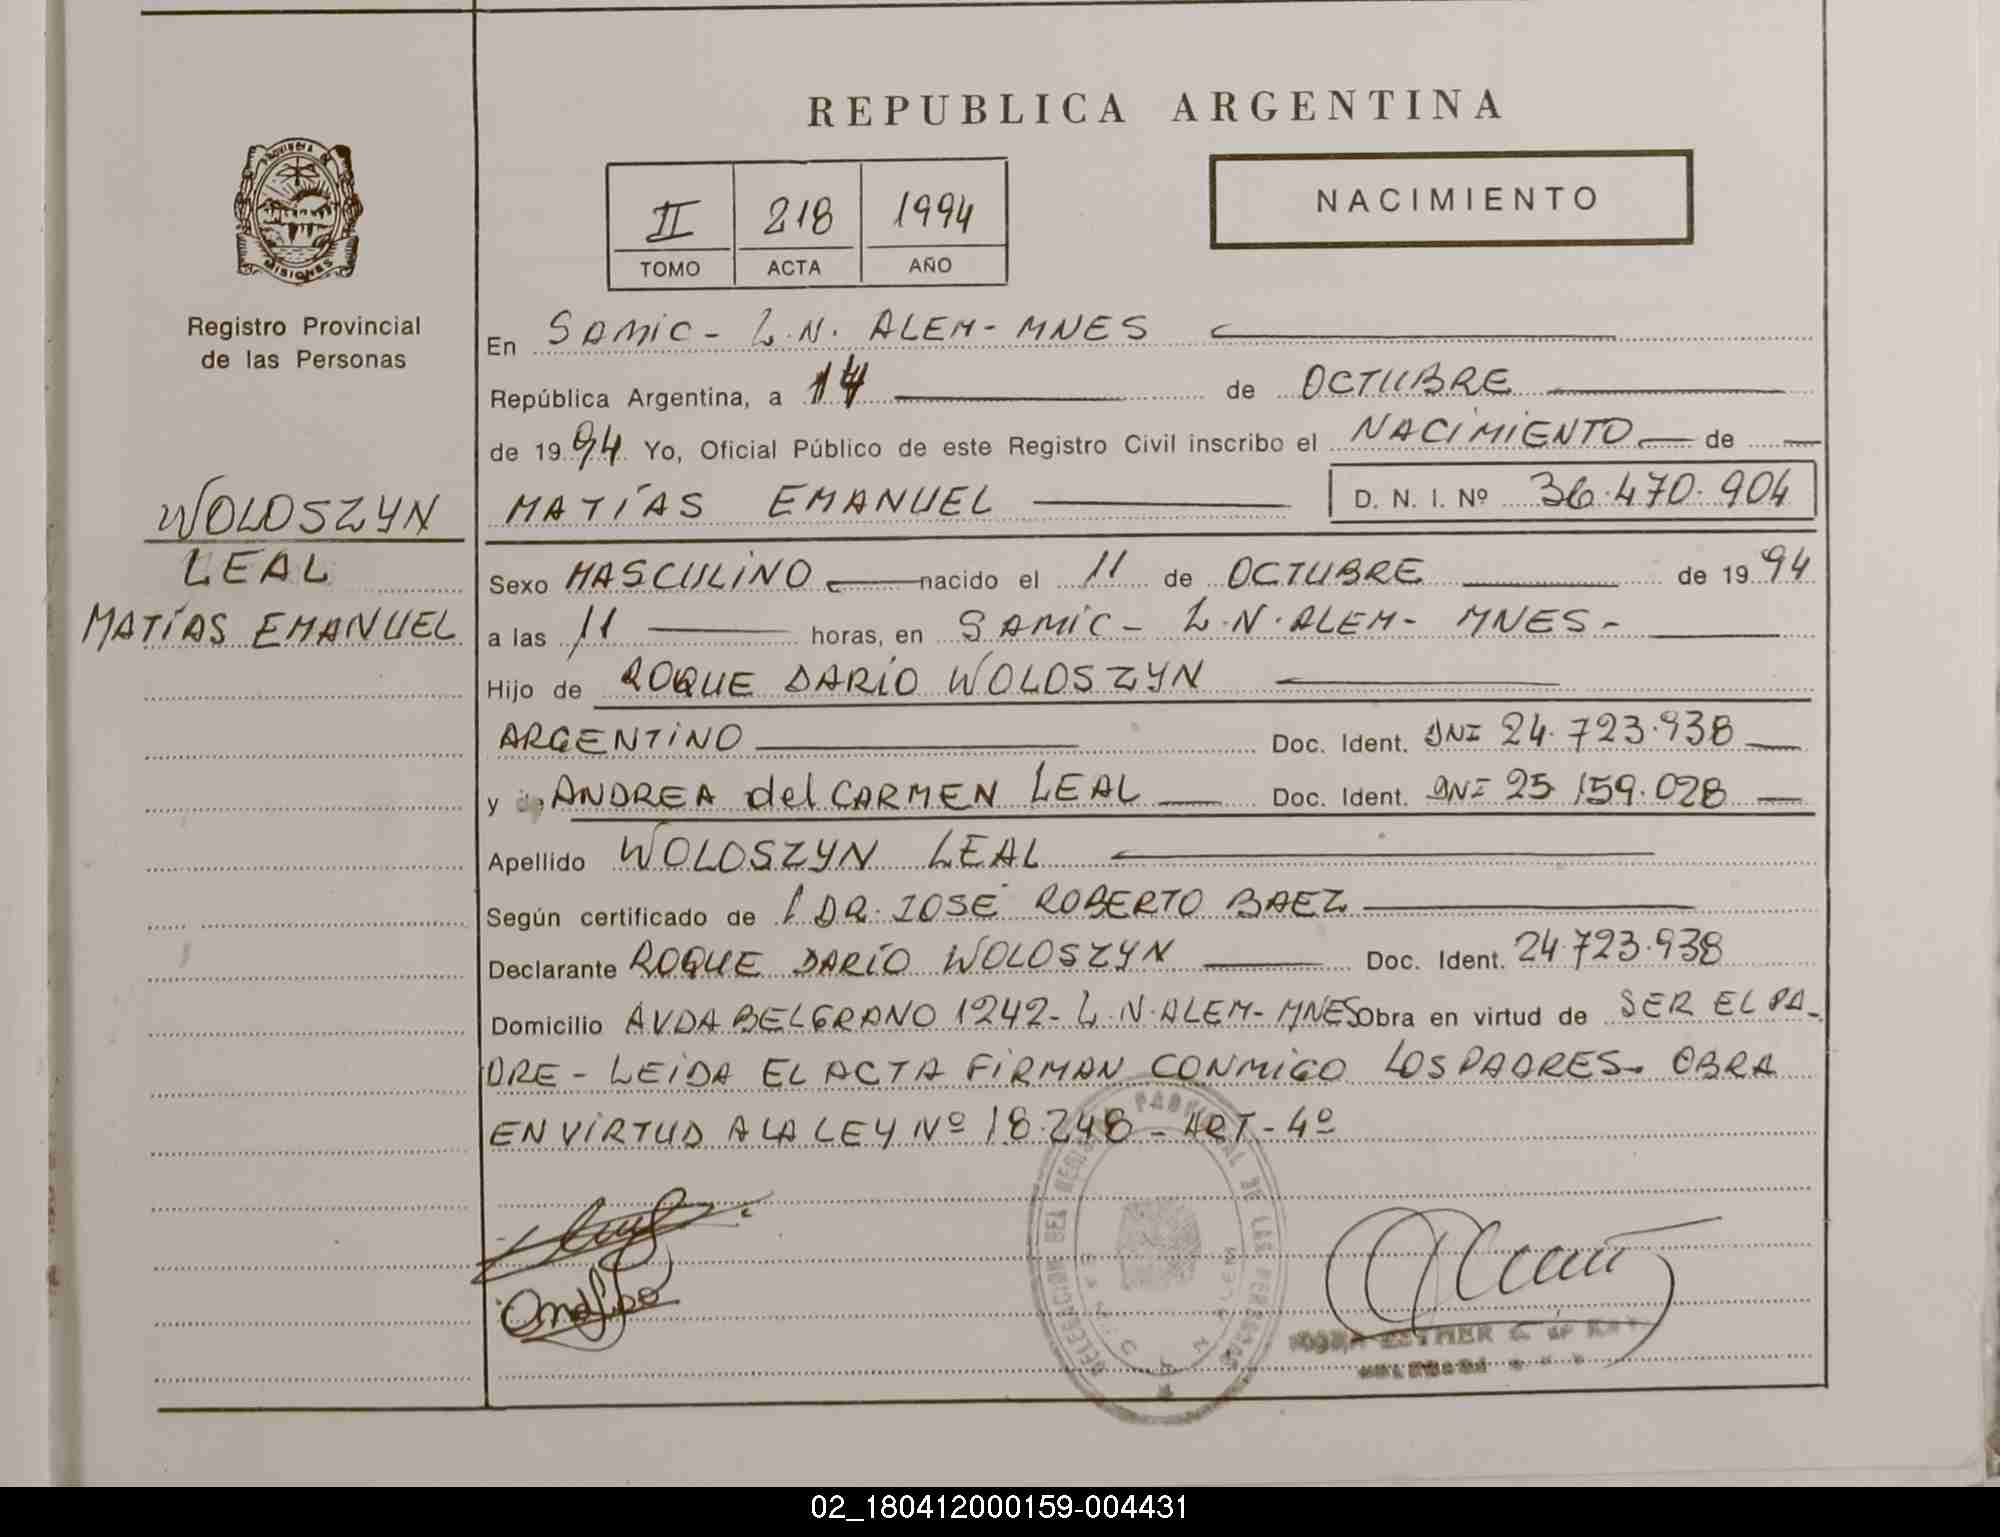 REPUBLICA ARGENTINA
PROVINCIA DE
MISIONES
Registro Provincial
de las Personas
II 218 1994
TOMO ACTA AÑO
NACIMIENTO
En SAMIC - L.N. ALEM - MNES
República Argentina, a 14 de OCTUBRE
de 1994 Yo, Oficial Público de este Registro Civil inscribo el NACIMIENTO de
WOLOSZYN
LEAL
MATÍAS EMANUEL
MATÍAS EMANUEL D. N. I. Nº 36.470.904
Sexo MASCULINO nacido el 11 de OCTUBRE de 1994
a las 11 horas, en SAMIC - L.N. ALEM - MNES -
Hijo de ROQUE DARÍO WOLOSZYN
ARGENTINO Doc. Ident. DNI 24.723.938
y ANDREA del CARMEN LEAL Doc. Ident. DNI 25.159.028
Apellido WOLOSZYN LEAL
Según certificado de DR. JOSÉ ROBERTO BAEZ
Declarante ROQUE DARÍO WOLOSZYN Doc. Ident. 24.723.938
Domicilio AVDA BELGRANO 1242 - L.N. ALEM - MNES Obra en virtud de SER EL PA-
DRE - LEIDA EL ACTA FIRMAN CONMIGO LOS PADRES - OBRA
EN VIRTUD A LA LEY Nº 18.248 - ART - 4º
02_180412000159-004431